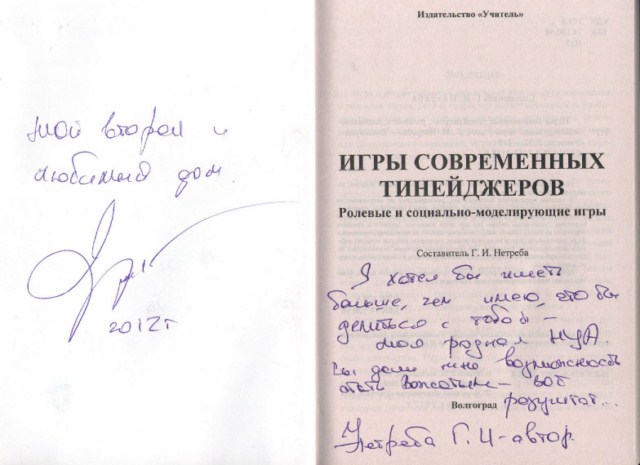 мой второй и
любимый дом.
2012 г
Издательство «Учитель»
ИГРЫ СОВРЕМЕННЫХ
ТИНЕЙДЖЕРОВ
Ролевые и социально-моделирующие игры
Составитель Г. И. Нетреба
Я хотел бы иметь
больше, чем имею, что бы
делиться с тобой –
моя родная
Вы дали мне возможность
стать вожатым – вот
результат...
Волгоград
Нетреба Г. И - автор.